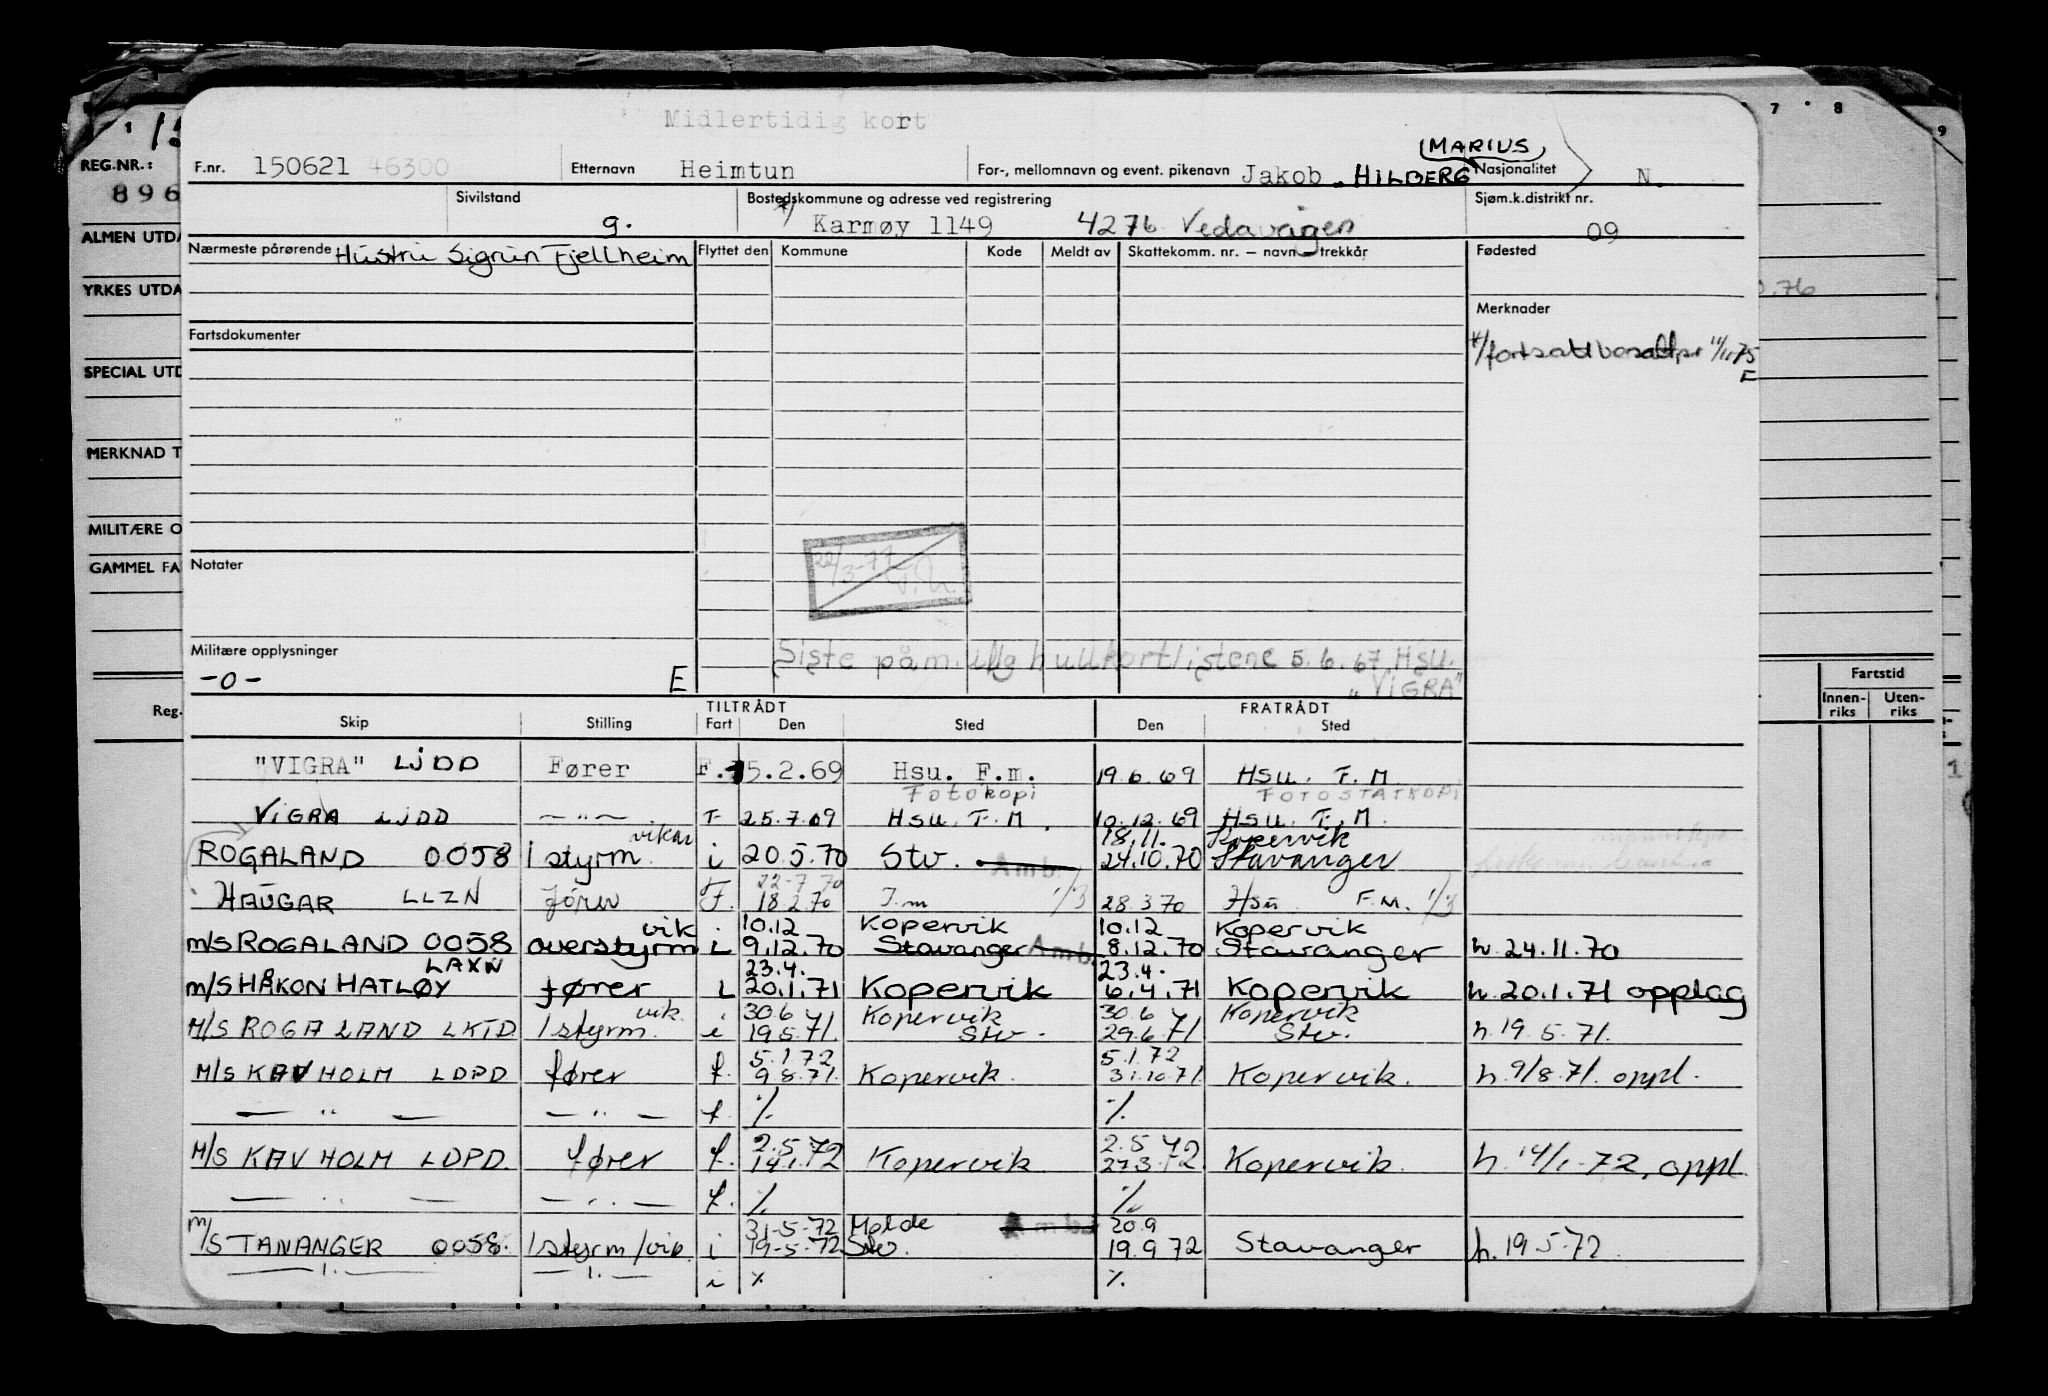 Midlertidig kort
F.nr. 150621 46300 Etternavn Heimtun For-, mellomnavn og event. pikenavn Jakob MARIUS HILBERG Nasjonalitet N.
Sivilstand g. Bostedskommune og adresse ved registrering Karmøy 1149 4276 Vedavågen Sjøm.k.distrikt nr. 09
Nærmeste pårørende Hustru Sigrun Fjellheim Flyttet den Kommune Kode Meldt av Skattekomm. nr. – navn – trekkår Fødested
Merknader
Fartsdokumenter
*/ fortsatt bosatt pr 11/11 75
E
Notater
22/3-77
Militære opplysninger
-0- E
Siste påm. ullg hullkortlistene 5.6.67 Hsu.
"VIGRA"
TILTRÅDT FRATRÅDT
Skip Stilling Fart Den Sted Den Sted
"VIGRA" LJDD Fører F. 15.2.69 Hsu. F.m. 19.6.69 HSU. F.M
Fotokopi FOTOSTATKOPI
VIGRA LJDD — " — F 25.7.69 HSU. F.M. 10.12.69 HSU. F.M.
vikar 18.11. Kopervik
ROGALAND 0058 1 styrm i 20.5.70 Stv. Amb. 24.10.70 Stavanger
22-7 70
HAUGAR LLZN fører F. 18.2.70 F.m 1/3 28.3 70 Hsu F.M. 1/3
vik 10.12 Kopervik 10.12 Kopervik
m/S ROGALAND 0058 overstyrm i 9.12.70 Stavanger Amb. 8.12.70 Stavanger h. 24.11.70
LAXN 23.4. 23.4.
m/S HÅKON HATLØY fører L 20.1.71 Kopervik 6.4.71 Kopervik h. 20.1.71 opplag
vik. 30.6 Kopervik 30.6 Kopervik
M/S ROGALAND LKTD 1 styrm. i 19.5.71. Stv. 29.6.71 Stv. h. 19.5.71.
5.1.72 5.1.72
M/S KAVHOLM LDPD fører f. 9.8.71. Kopervik. 31.10.71 Kopervik. h. 9/8.71. oppl.
— " — — " — f. % %
2.5.72 2.5 72
M/S KAVHOLM LDPD. fører f. 14.1.72 Kopervik 27.3.72 Kopervik. h. 14/1-72, oppl
— " — — " — f. % %
31-5-72 Molde Amb. 20.9
m/S TANANGER 0058. 1 styrm/vik i 19-5.72 Stv. 19.9 72 Stavanger h. 19.5-72.
— " — — " — i % %
REG.NR.:
896
ALMEN UTDA
YRKES UTDA
SPECIAL UTD
MERKNAD T
MILITÆRE O
GAMMEL FA
Reg.
1
7 8
9
.76
Fartstid
Innen-riks Uten-riks
1